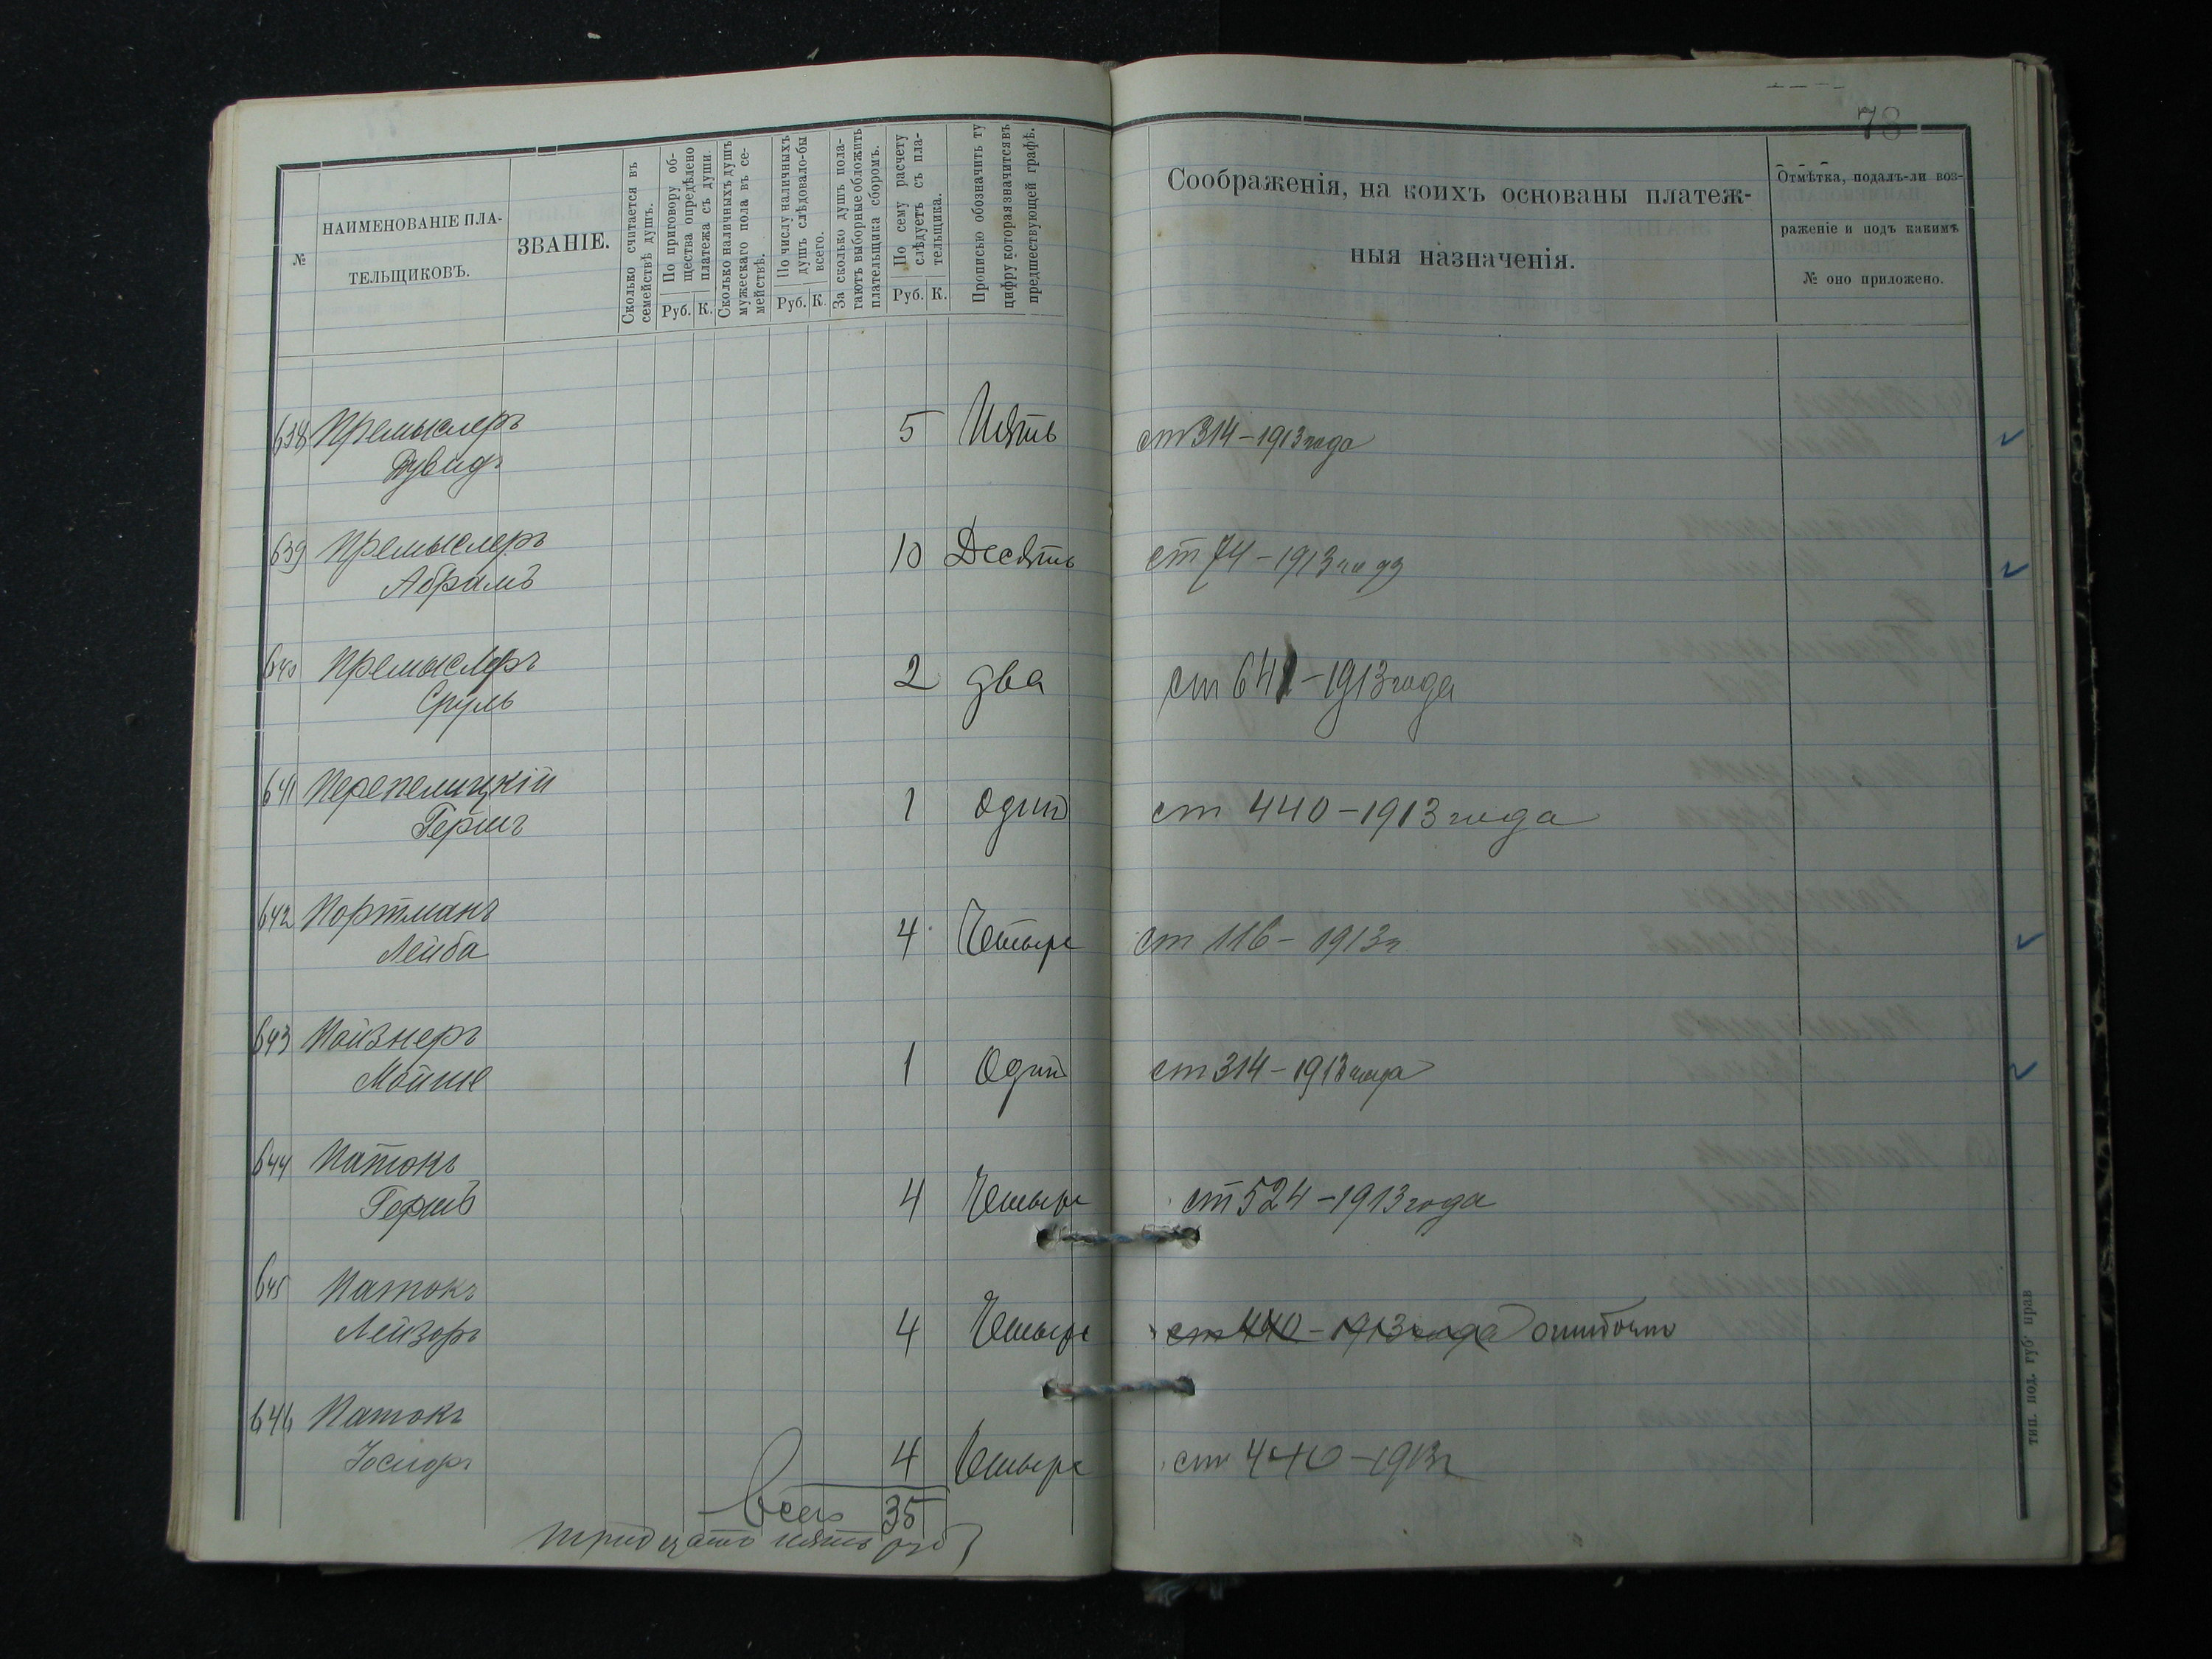 78
№
НАИМЕНОВАНІЕ ПЛА-
ТЕЛЬЩИКОВЪ.
ЗВАНІЕ.
Сколько считается въ
семействѣ душъ.
По приговору об-
щества опредѣлено
платежа съ души.
Руб. К.
Сколько наличныхъ душъ
мужескаго пола въ се-
мействѣ.
По числу наличныхъ
душъ слѣдовало-бы
всего.
Руб. К.
За сколько душъ пола-
гаютъ выборные обложить
плательщика сборомъ.
По сему расчету
слѣдуетъ съ пла-
тельщика.
Руб. К.
Прописью обозначить ту
цифру которая значится въ
предшествующей графѣ.
Соображенія, на коихъ основаны платеж-
ныя назначенія.
Отмѣтка, подалъ-ли воз-
раженіе и подъ какимъ
№ оно приложено.
638 Премыслеръ 5 Пять ст 314-1913 года
Дувидъ
639 Премыслеръ 10 Десять ст 74-1913 года
Абрамъ
640 Премыслеръ 2 два ст 641-1913 года
Сруль
641 Перепелицкій 1 один ст 440-1913 года
Гершъ
642 Портманъ 4 Четыре ст 116-1913 г
Лейба
643 Пойзнеръ 1 Один ст 314-1913 года
Мойше
644 Патокъ 4 Четыре ст 524-1913 года
Гершъ
645 Патокъ 4 Четыре ст 440-1913 года ошибочно
Лейзоръ
646 Патокъ 4 Четыре ст 440-1913 г
Іосифъ
Всего 35
тридцать пять руб
тип. под. губ. прав